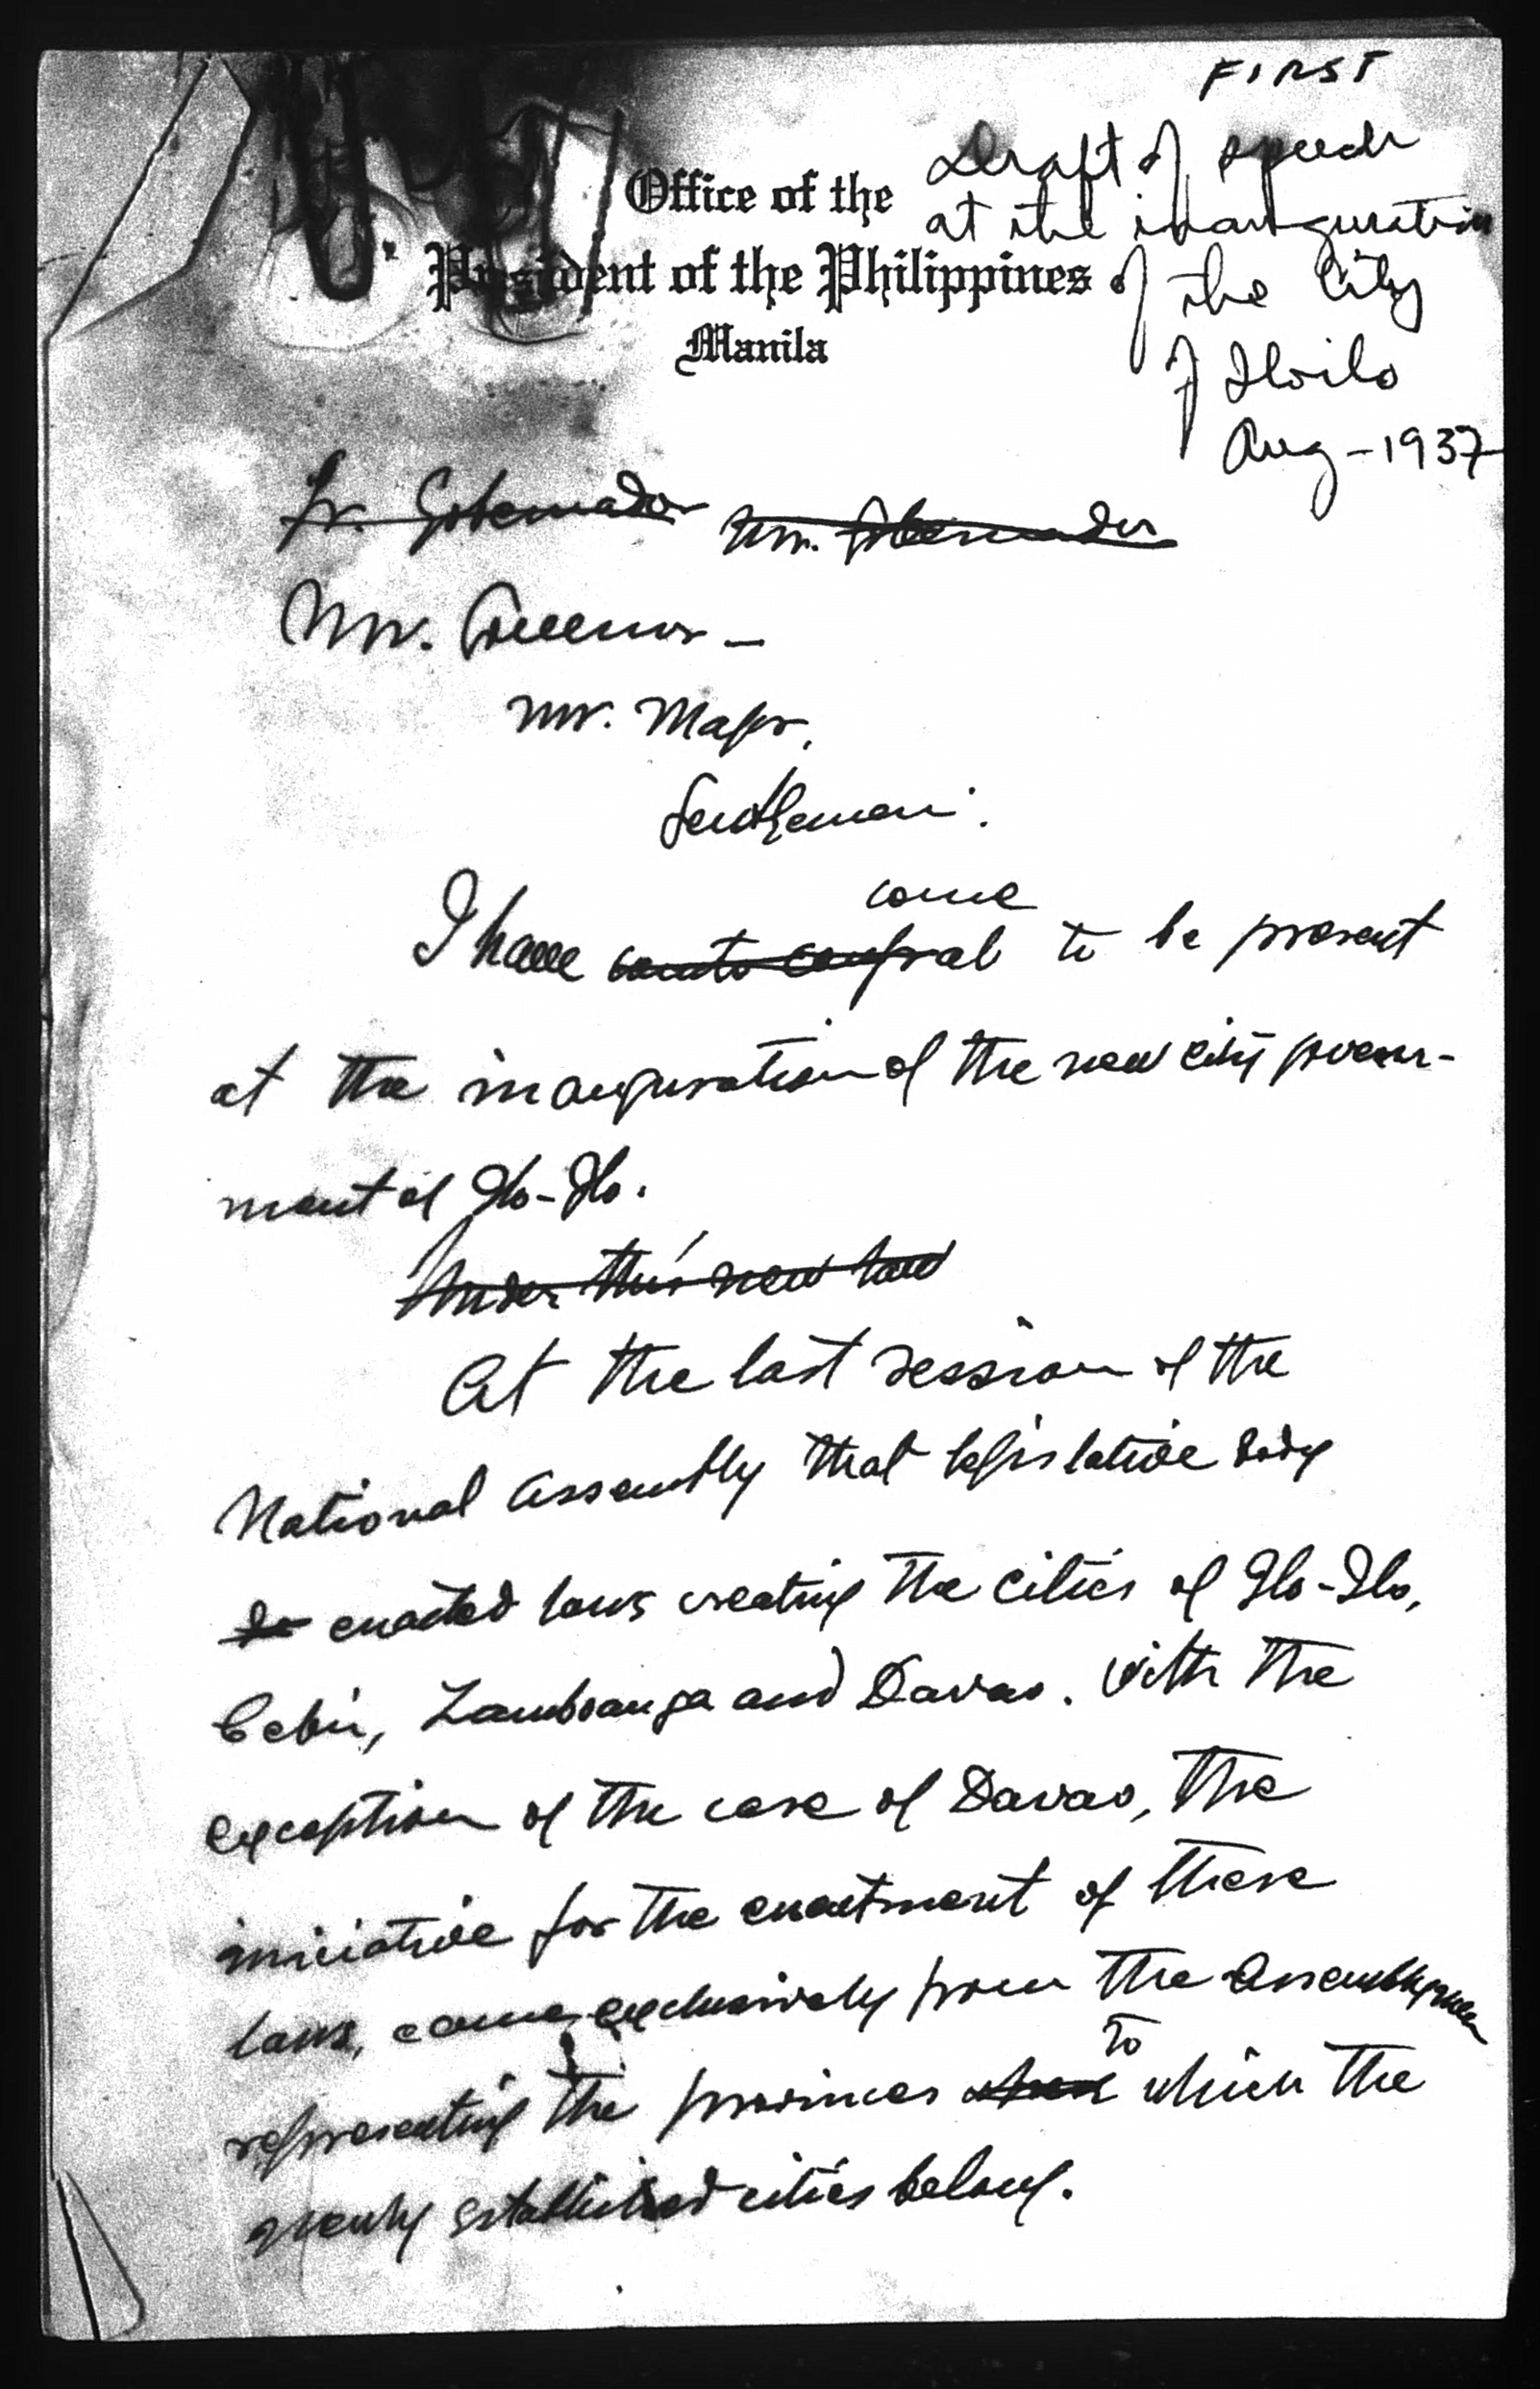 FIRST
Draft of speech
at the inauguration
of the City
of Iloilo
Aug - 1937
Office of the
President of the Philippines
Manila
Sr. Gobernador Mr. Gobernador
Mr. Governor —
Mr. Mayor,
Gentlemen:
come
I have to be present
at the inauguration of the new city govern-
ment of Ilo-Ilo.
Under this new law
At the last session of the
National Assembly that legislative body
enacted laws creating the cities of Ilo-Ilo,
Cebú, Zamboanga and Davao. With the
exception of the case of Davao, the
iniciative for the enactment of these
laws, came exclusively from the Assemblymen
to
representing the provinces which the
newly established cities belong.